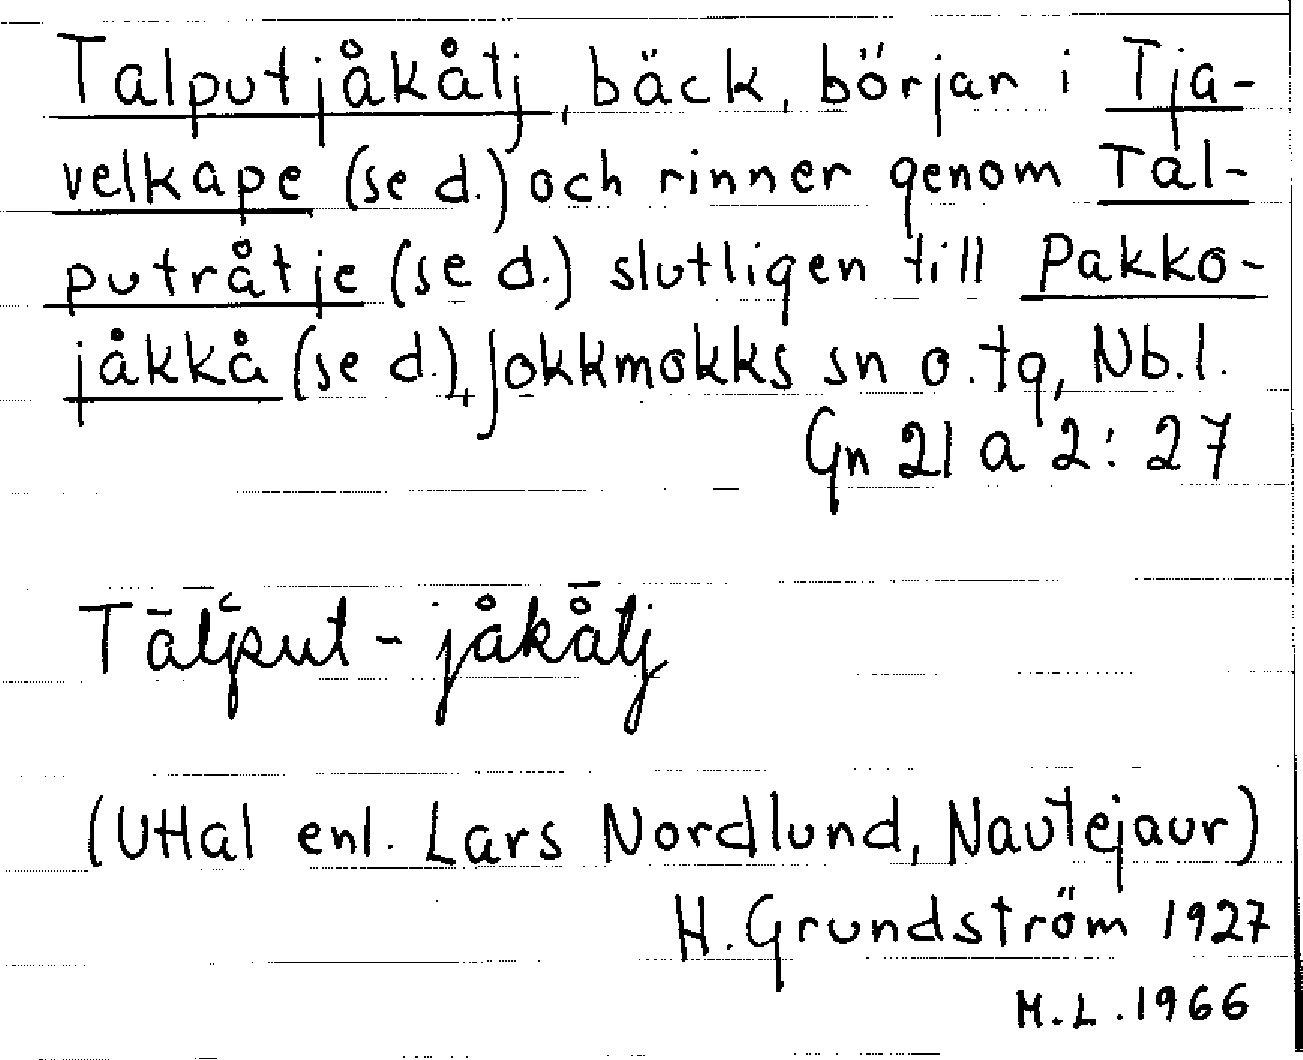 Talputjåkåtj, bäck, börjar i Tja-
velkape (se d.) och rinner genom Tal-
putråtje (se d.) slutligen till Pakko-
jåkkå (se d.), Jokkmokks sn o. tg, Nb. l.
Gn 21 a 2:27
(Uttal enl. Lars Nordlund, Nautejaur)
H. Grundström 1927
H. L. 1966